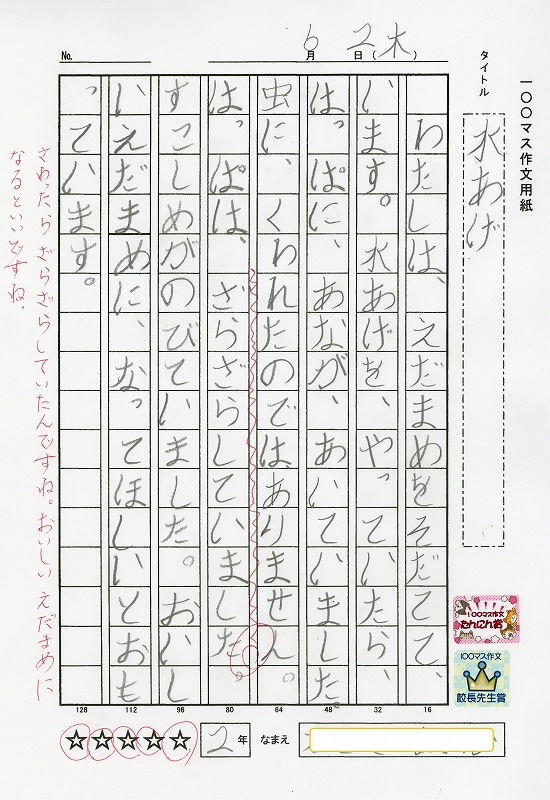 一〇〇マス作文用紙
タイトル
水あげ
No.
6月2日(木)
わたしは、えだまめをそだてて、
います。水あげを、やっていたら、
はっぱに、あなが、あいていました。
虫に、くわれたのでは、ありません。
はっぱは、ざらざらしていました。
すこしめがのびていました。おいし
いえだまめに、なってほしいとおも
っています。
さわったら ざらざらしていたんですね。おいしい えだまめに
なるといいですね。
128 112 96 80 64 48 32 16
100マス作文
たんにん賞
100マス作文
校長先生賞
☆☆☆☆☆ 2年 なまえ